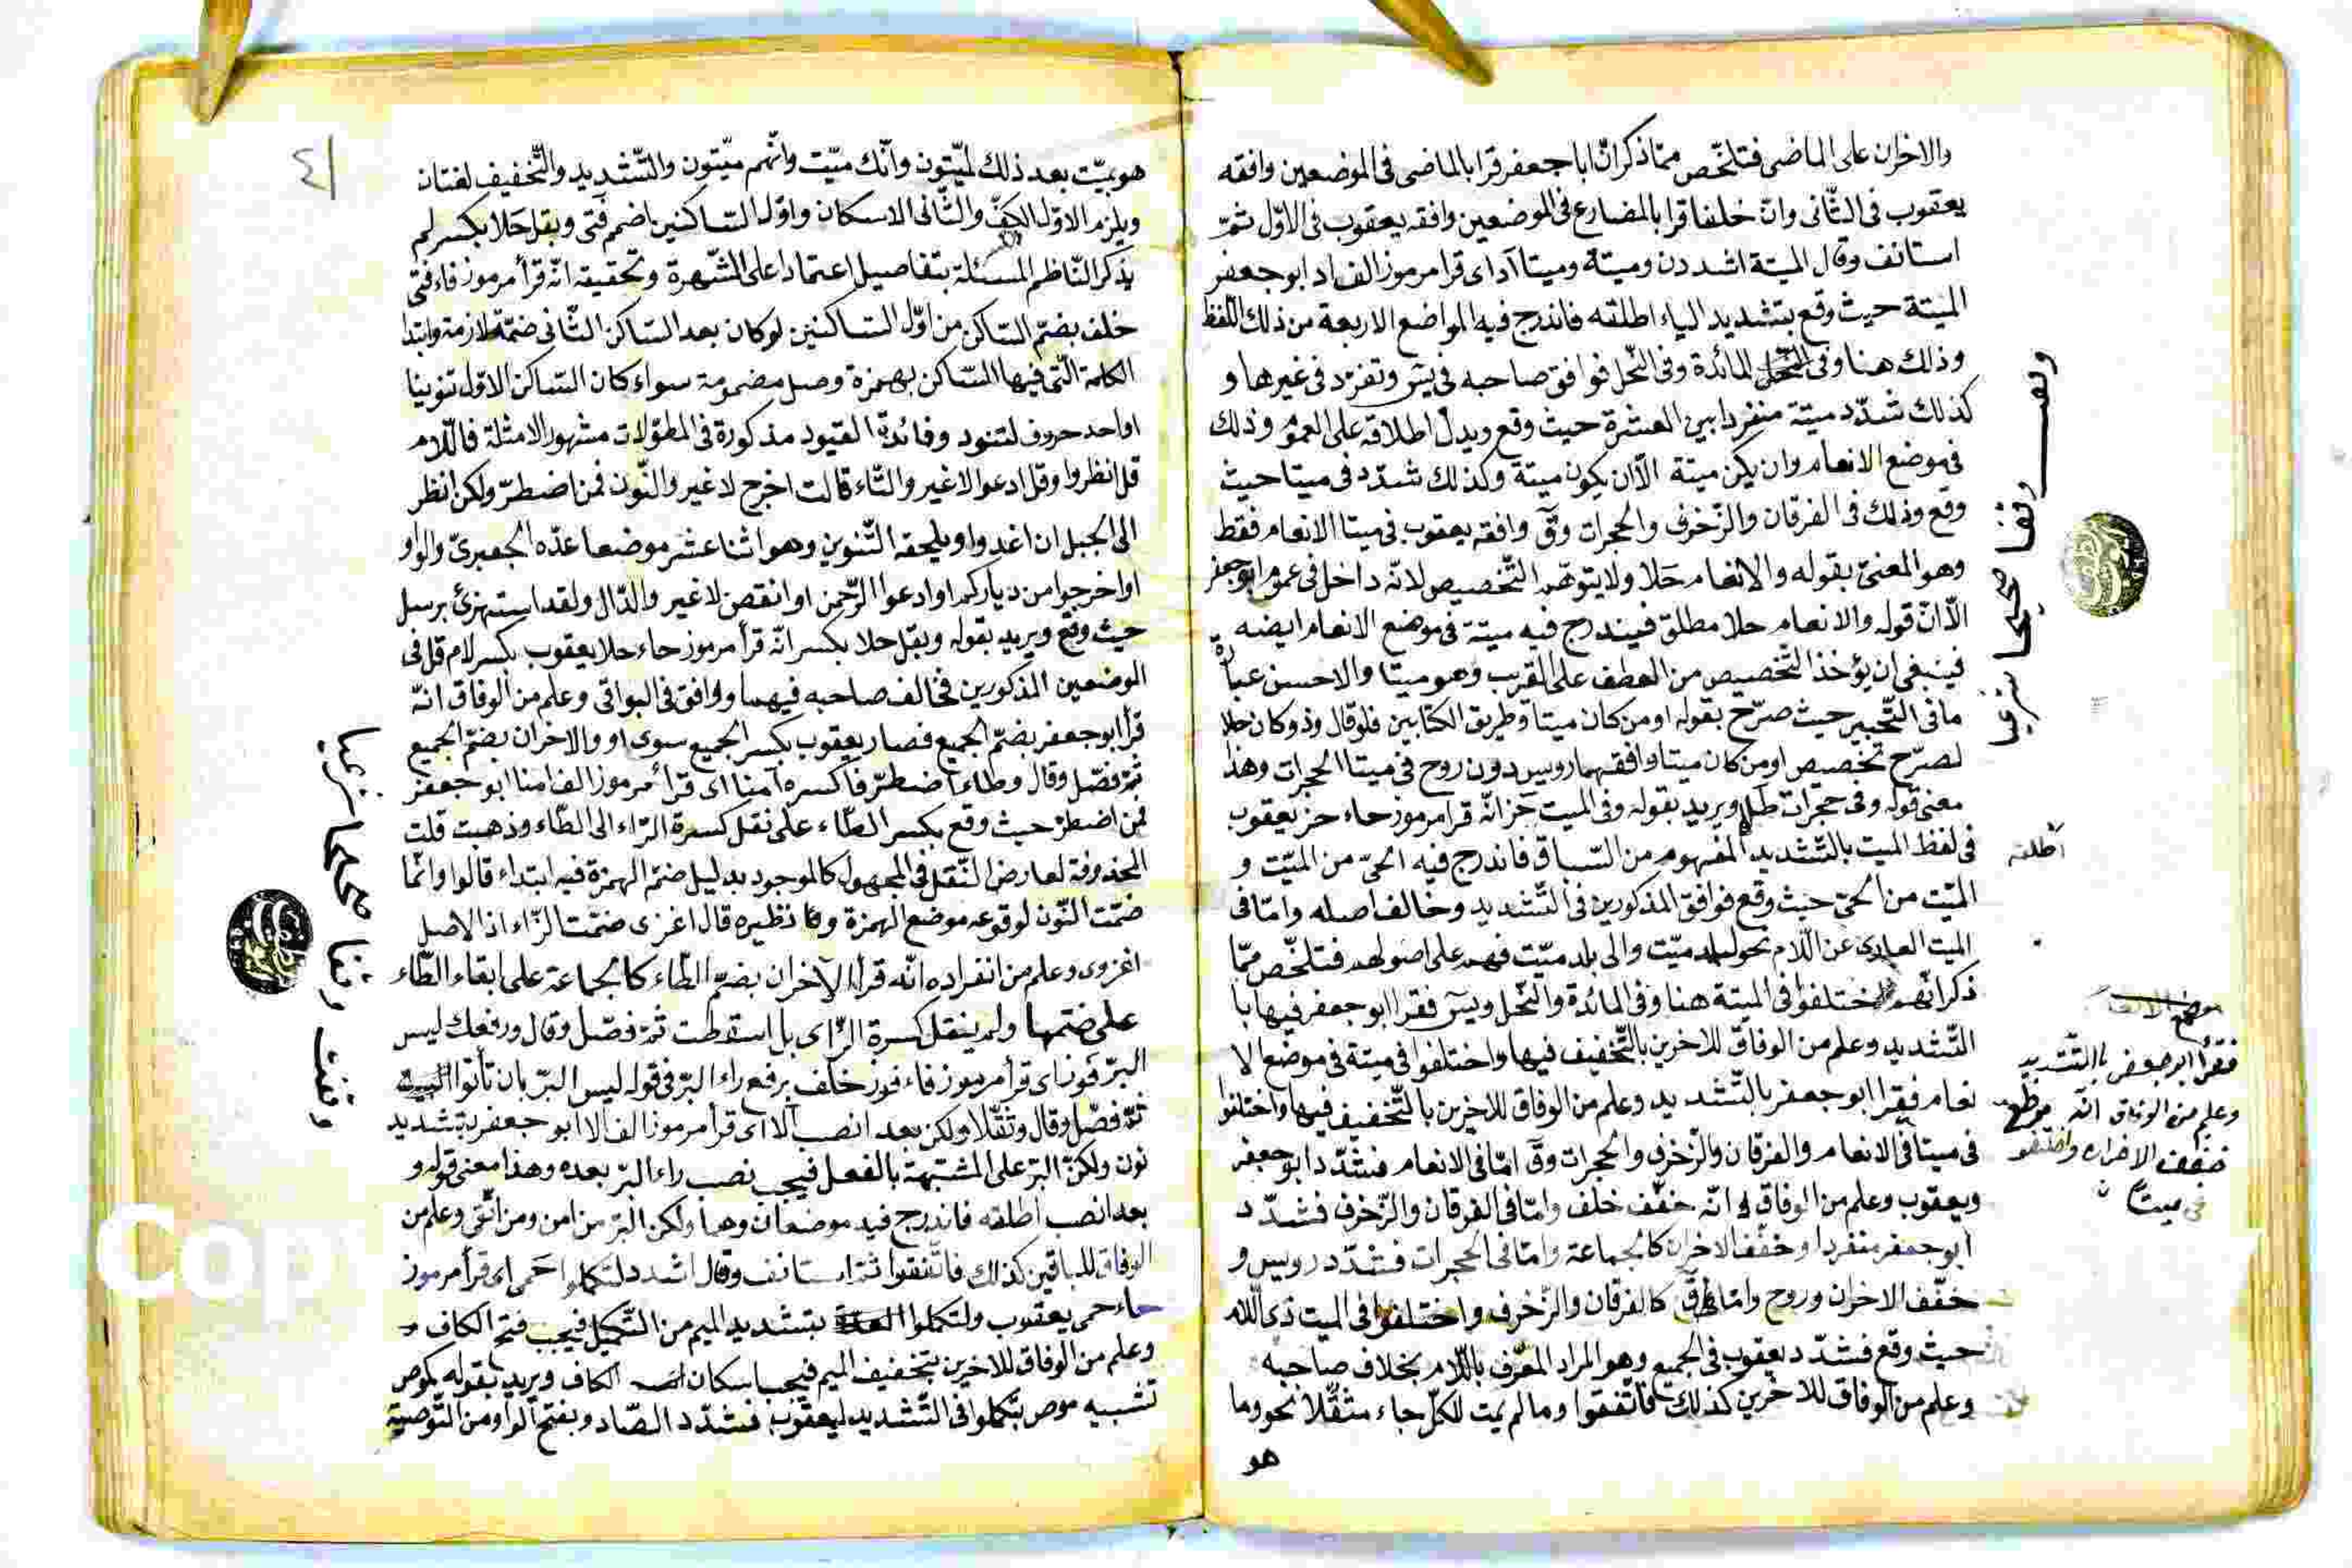 والاخران على الماضى فتلخّص ممّا ذكر انّ ابا جعفر قرا بالماضى فى الموضعين وافقه
يعقوب فى الثّانى وانّ خلفا قرا بالمضارع فى الموضعين وافقه يعقوب فى الاوّل ثمّ
استانف وقال الميتة اشددن وميتة وميتا آد اى قرا مرموز الف اد ابو جعفر
الميتة حيث وقع بتشديد الياء اطلقه فاندرج فيه المواضع الاربعة من ذلك اللّفظ
وذلك هنا وفى المائدة وفى النّحل فوافق صاحبه فى يسۤ وتفرّد فى غيرها و
كذلك شدّد ميتة منفردا بين العشرة حيث وقع ويدل اطلاقه على العموم وذلك
فى موضع الانعام وان يكن ميتة الّا ان يكون ميتة وكذلك شدّد فى ميتا حيث
وقع وذلك فى الفرقان والزّخرف والحجرات وقۤ وافقه يعقوب فى ميتا الانعام فقط
وهو المعنىّ بقوله والانعام حَلا ولا يتوهّم التّخصيص لانّه داخل فى عموم ابو جعفر
الّا انّ قوله والانعام حلا مطلق فيندرج فيه ميتة فى موضع الانعام ايضه
فينبغى ان يؤخذ التّخصيص من العطف على القرب وهو ميتا والاحسن عبارة
ما فى التّحبير حيث صرّح بقوله اومن كان ميتا وطريق الكتابين فلو قال وذو كان حلا
لصرّح تخصيص اومن كان ميتا وافقهما رويس دون روح فى ميتا الحجرات وهذا
معنى قوله وفى حجرات طل ويريد بقوله وفى الميت حز انّه قرا مرموز حاء حز يعقوب
فى لفظ الميت بالتّشديد المفهوم من السّباق فاندرج فيه الحىّ من الميّت و
الميّت من الحىّ حيث وقع فوافق المذكورين فى التّشديد وخالف اصله وامّا فى
الميت العارى عن اللّام نحو لبلد ميّت والى بلد ميّت فهم على اصولهم فتلخّص ممّا
ذكر انّهم اختلفوا فى الميتة هنا وفى المائدة والنّحل ويسۤ فقرا ابو جعفر فيها با
التّشديد وعلم من الوفاق للاخرين بالتّخفيف فيها واختلفوا فى ميتة فى موضع الا
نعام فقرا ابو جعفر بالتّشديد وعلم من الوفاق للاخرين بالتّخفيف فيها واختلفوا
فى ميتا فى الانعام والفرقان والزّخرف والحجرات وقۤ امّا فى الانعام فشدّد ابو جعفر
ويعقوب وعلم من الوفاق انّه خفّف خلف وامّا فى الفرقان والزّخرف فشدّد
ابو جعفر منفردا وخفّف الاخران كالجماعة وامّا فى الحجرات فشدّد رويس و
خفّف الاخران وروح وامّا فى قۤ كالفرقان والزّخرف واختلفوا فى الميت ذى اللّام
حيث وقع فشدّد يعقوب فى الجميع وهو المراد المعرّف باللّام بخلاف صاحبه
وعلم من الوفاق للاخرين كذلك فاتّفقوا وما لم يمت للكلّ جاء مثقّلا نحو وما
هو
اطلقه
فقرا ابو جعفر باالتّشديد
وعلم من الوفاق انّه
فى ميتا
٤١
هو بميّت بعد ذلك لميّتون وانّك ميّت وانّهم ميّتون والتّشديد والتّخفيف لغتان
ويلزم الاوّل الكفّ والثّانى الاسكان واوّل السّاكنين اضمم فتى وبقل حَلا بكسر لم
يذكر النّاظم المسئلة بتفاصيل اعتمادا على الشّهرة وتحقيقه انّه قرأ مرموز فاء فتى
خلف بضمّ السّاكن من اوّل السّاكنين لو كان بعد السّاكن الثّانى ضمّة لازمة وابتدا
الكلمة الّتى فيها السّاكن بهمزة وصل مضمومة سواء كان السّاكن الاوّل تنوينا
او احد حروف لتنود وفائدة القيود مذكورة فى المطوّلات مشهور الامثلة فاللّام
قل انظروا وقل ادعوا لا غير والتّاء قالت اخرج لا غير والنّون فمن اضطرّ ولكن انظر
الى الجبل ان اغدوا ويلحقه التّنوين وهو اثنا عشر موضعا عدّه الجعبرىّ والواو
او اخرجوا من دياركم او ادعوا الرّحمن او انقص لا غير والدّال ولقد استهزئ برسل
حيث وقع ويريد بقوله وبقل حلا بكسر انّه قرأ مرموز حاء حلا يعقوب بكسر لام قل فى
الوضعين المذكورين فخالف صاحبه فيهما ووافق فى البواقى وعلم من الوفاق انّه
قرأ ابو جعفر بضمّ الجميع فصار يعقوب بكسر الجميع سوى او والاخران بضمّ الجميع
ثمّ فصّل وقال وطاء اضطرّ فاكسره آمنا اى قرأ مرموز الف امنا ابو جعفر
فمن اضطرّ حيث وقع بكسر الطّاء على نقل كسرة الرّاء الى الطّاء وذهبت قلت
المحذوفة لعارض النّقل فى المجهول كالموجود بدليل ضمّ الهمزة فيه ابتداء قالوا وانّما
ضمّت النّون لوقوعه موضع الهمزة وما نظيره قال اغزى ضمّت الزّاء اذ الاصل
اغزوى وعلم من انفراده انّه قرأ الآخران بضمّ الطّاء كالجماعة على ابقاء الطّاء
على ضمّها ولم ينقل كسرة الرّاى بل اسقطت ثمّ فصّل وقال ورفعك ليس
البرّ فوز اى قرأ مرموز فاء فوز خلف برفع راء البرّ فى قوله ليس البرّ بان تأتوا البيت
ثمّ فصّل وقال وثقّلا ولكن بعد انصب آلا اى قرأ مرموز الف الا ابو جعفر بتشديد
نون ولكنّ البرّ على المشتبهة بالفعل فيجب نصب راء البرّ بعده وهذا معنى قوله و
بعد انصب اطلقه فاندرج فيه موضعان وهما ولكن البرّ من امن ومن اتّقى وعلم من
الوفاق للباقين كذلك فاتّفقوا ثمّ استانف وقال اشدد لتكملوا حَمى اى قرأ مرموز
حاء حمى يعقوب ولتكملوا العدّة بتشديد الميم من التّكميل فيجب فتح الكاف
وعلم من الوفاق للاخرين بتخفيف الميم فيجب اسكان الكاف ويريد بقوله كموص
تشبيه موص بتكملوا فى التّشديد ليعقوب فشدّد الصّاد وبفتح الواو من التّوصية